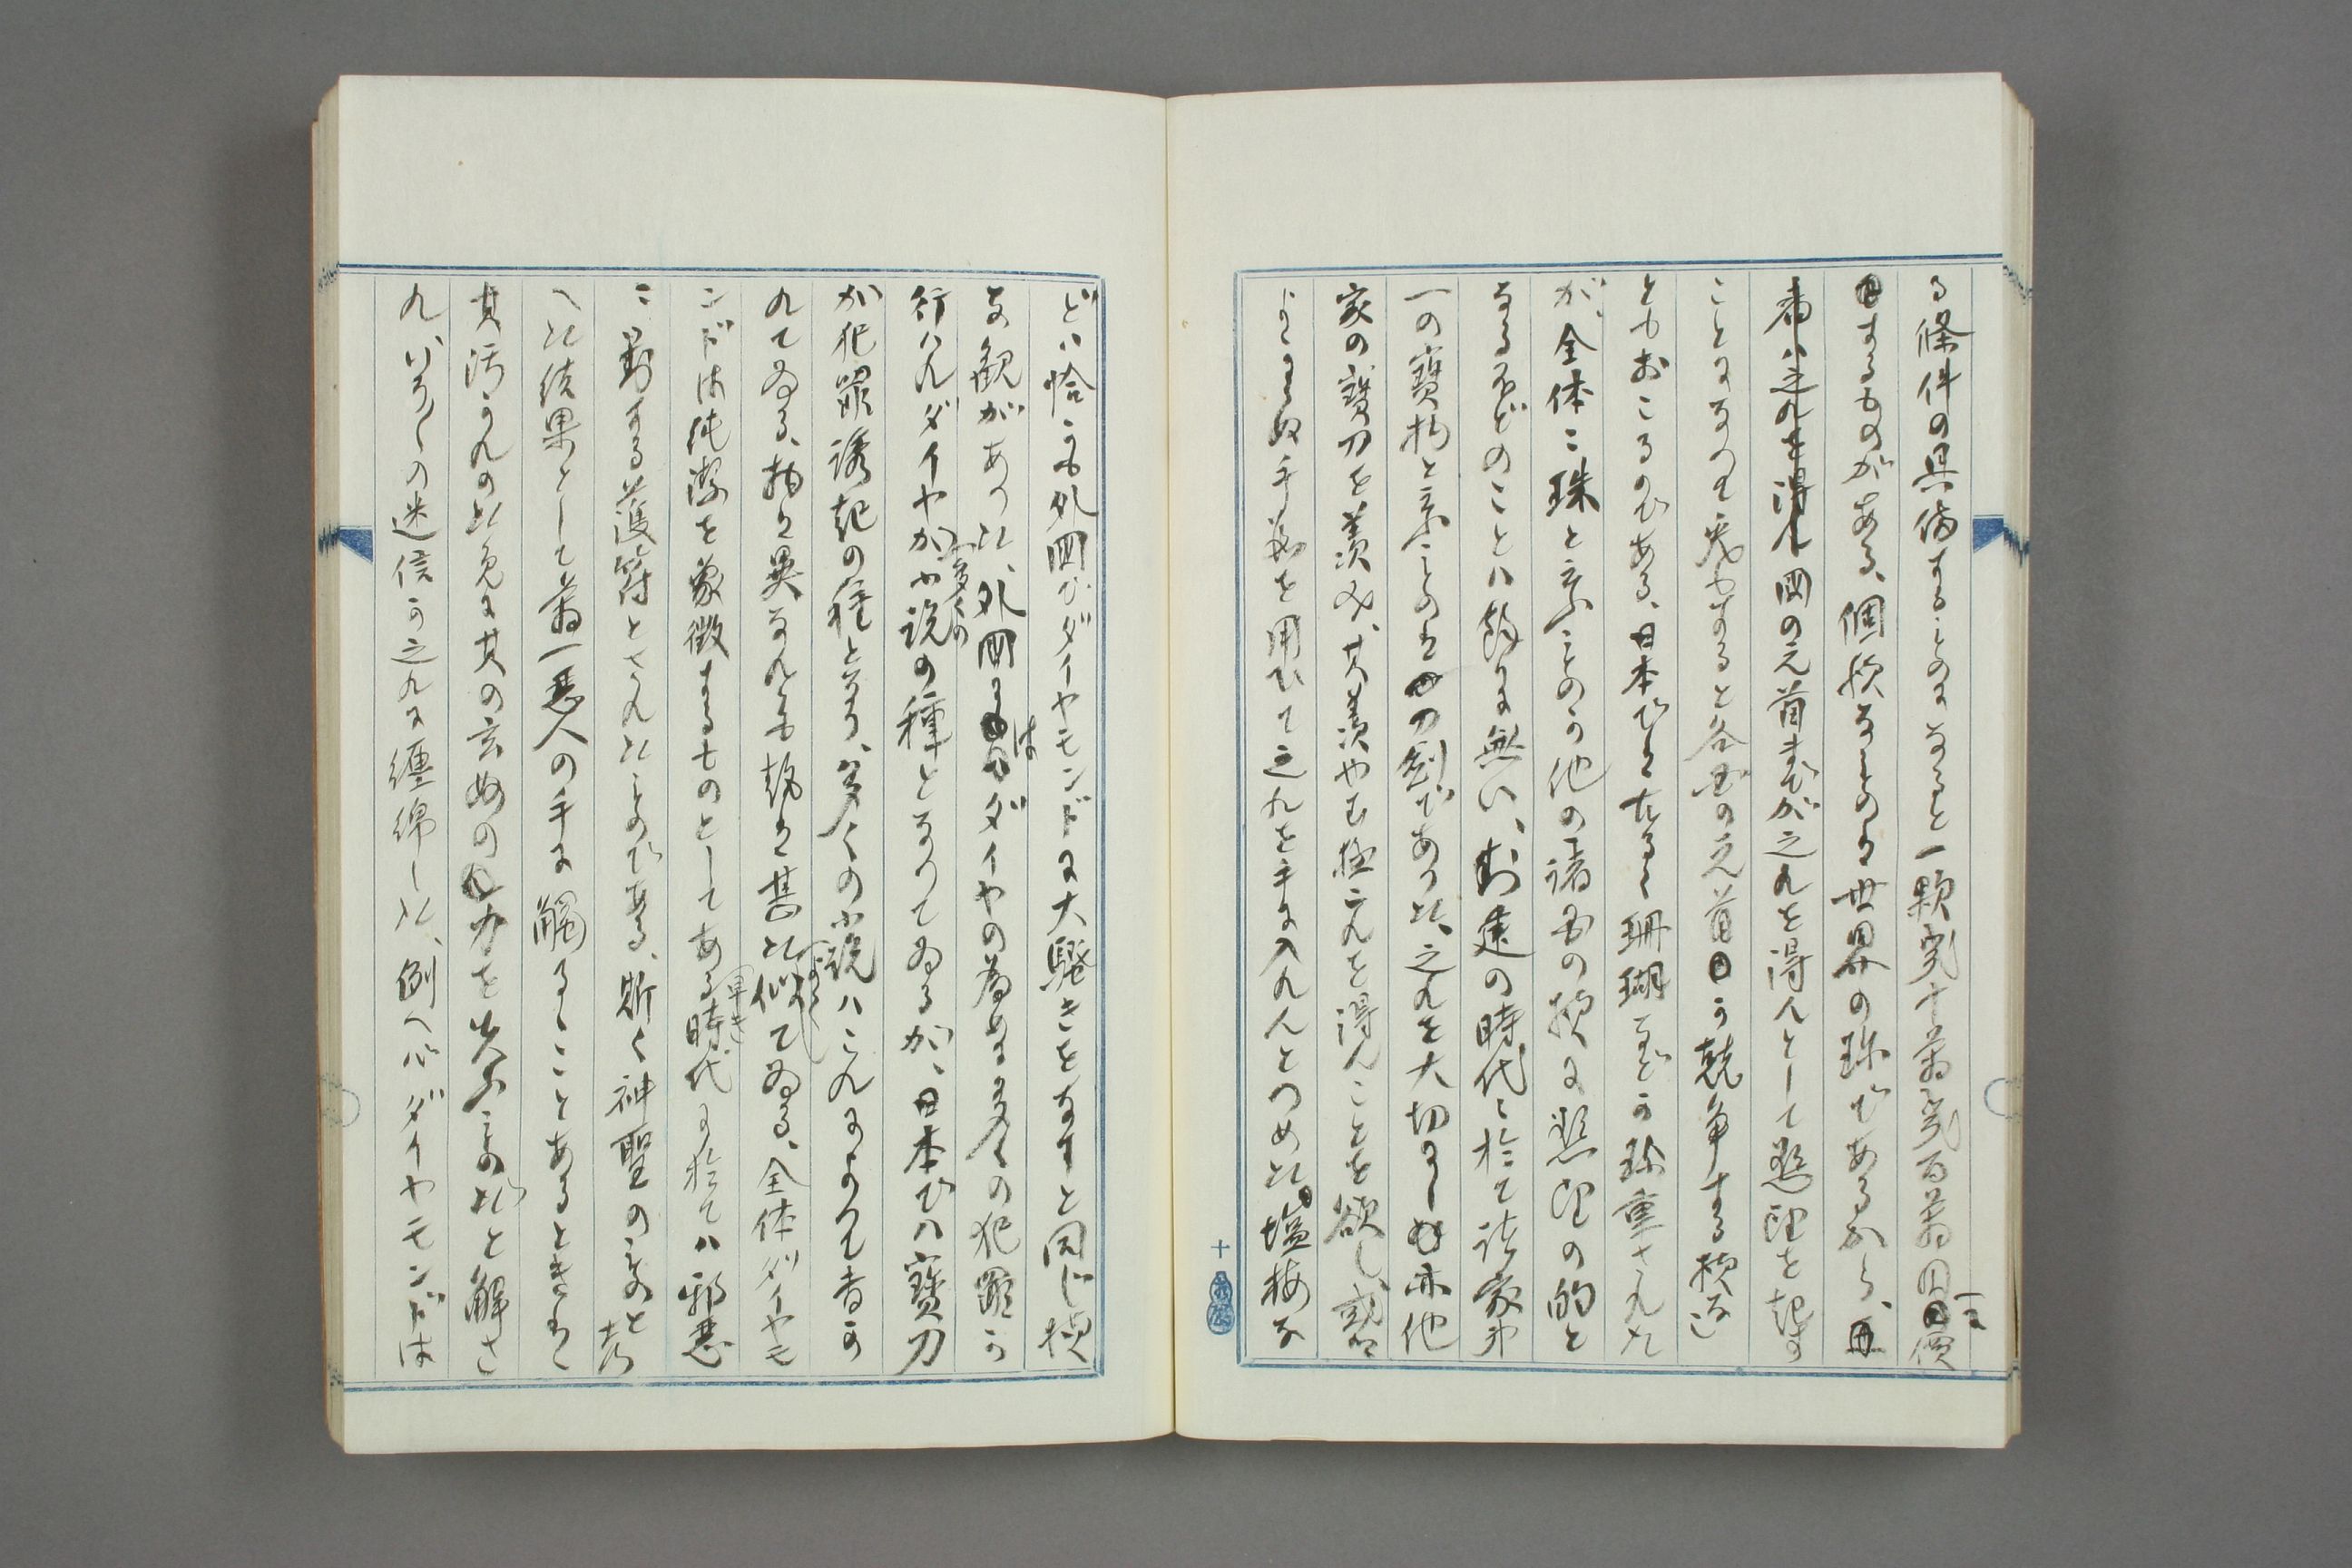 る條件の具備することのなると一顆実に十萬弐百萬円價
するものがある、個様なものは世界の珍であるから、
者は之れを得人国の元首までが之れを得んとして懸望を起す
ことになつて兎やすると各国の元首が競争する様な
ともおこるのである、日本では古るく珊瑚などが珍重された
が、全体に珠と云ふものが他の諸国の様に懸望の的と
なるなどのことは餘りに無い、封建の時代に於て諸家中
一の寶物と云ふものは刀劍であつた、之れを大切にし亦他
家の寶刀を羨み、其羨やむ極これを得んことを欲し、或は
よからぬ手段を用ひて之れを手に入れんとつめた塩梅な
どは恰かも外国でダイヤモンドに大騒きをなすと同じ様
な観があつた、外国にはダイヤの為めに多くの犯罪が
行はれダイヤが多くの小説の種となつてゐるが、日本では寶刀
が犯罪誘起の種となり、多くの小説はこれによつて書か
れてゐる、物は異なれども趣は甚た似てゐる、全体ダイヤモ
ンドは純潔を象徴するものとしてある時代に於ては邪悪
に對する護符とされたものである、斯く神聖のものと考
へた結果として萬一悪人の手に觸るゝことあるときは
其汚れの為に其の玄妙の力を失ふものだと解さ
れ、いろ〱の迷信が之れに纏綿した、例へばダイヤモンドは
十